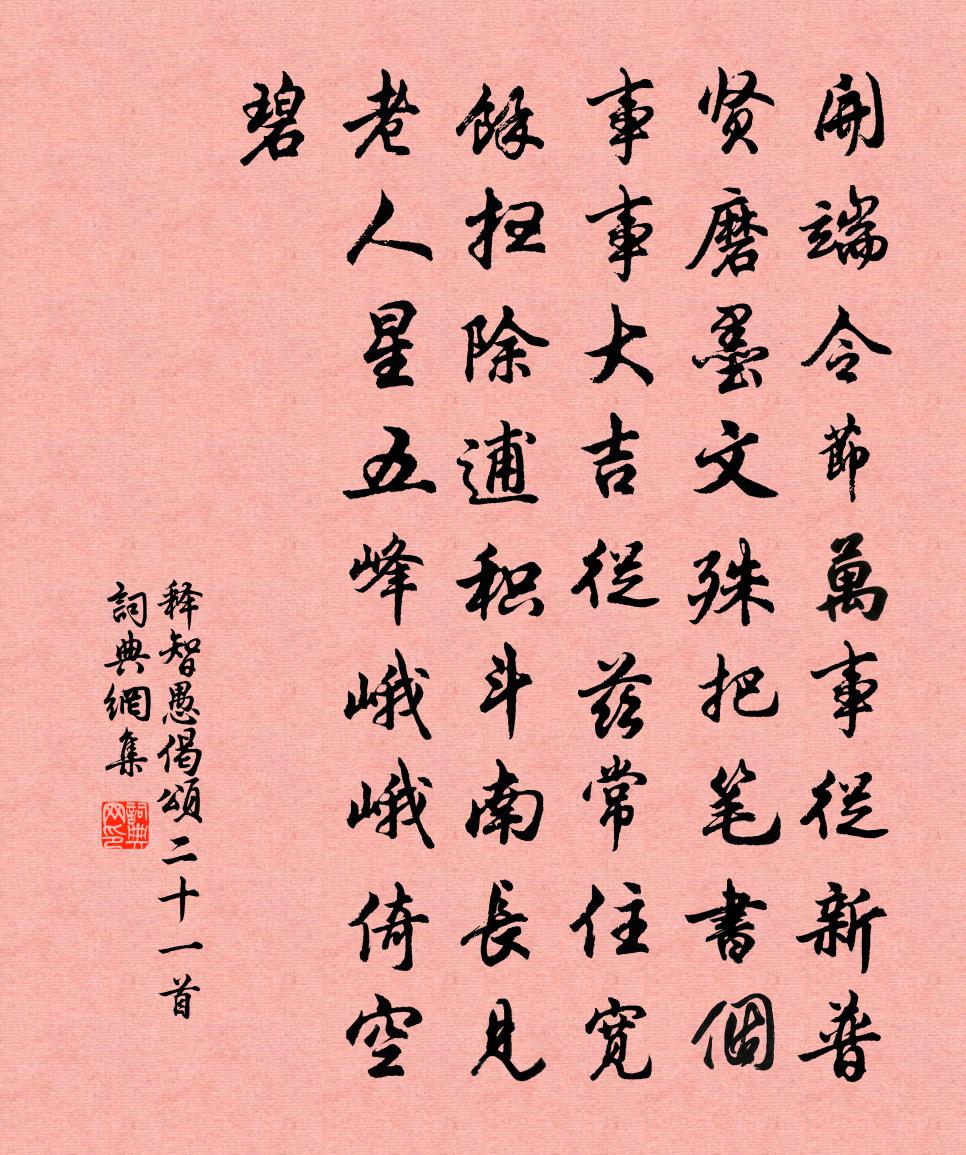 開端令節萬事從新普
贤磨墨文殊把笔書個
事事大吉從茲常住寬
餘扫除逋积斗南長見
老人星五峰峨峨倚空
碧
释智愚偈頌二十一首
詞典網集
詞典网印